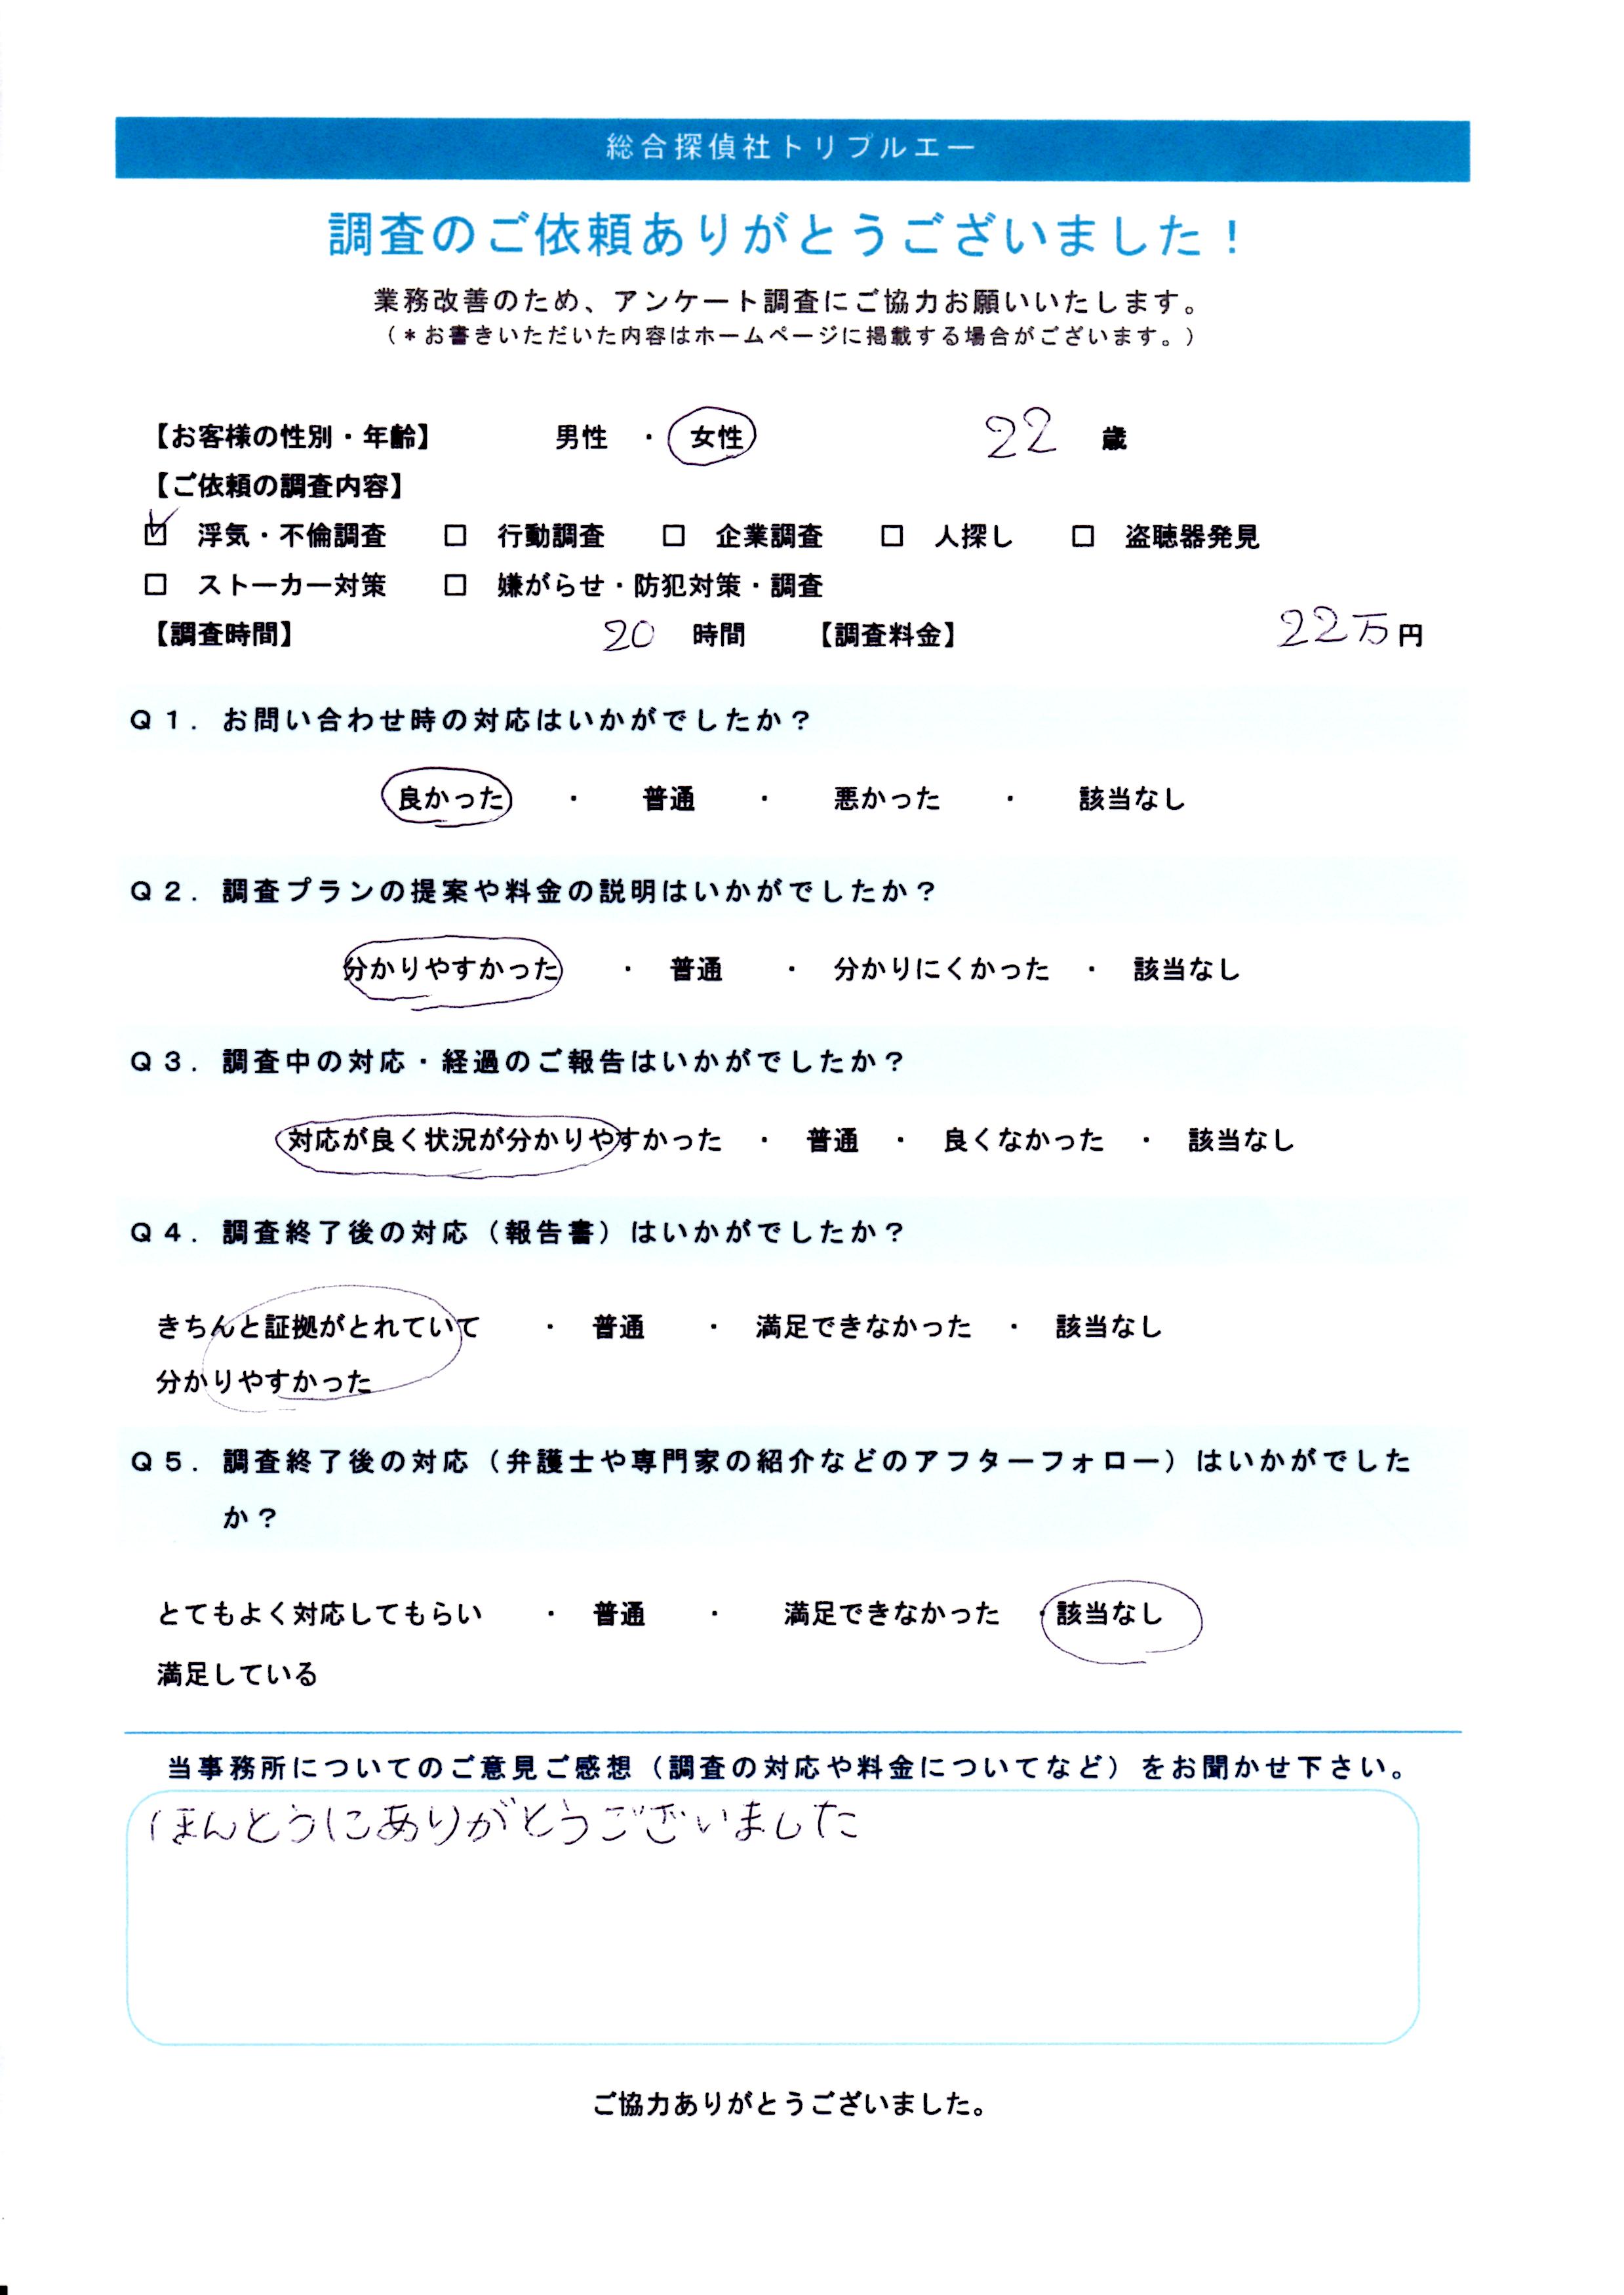 総合探偵社トリプルエー
調査のご依頼ありがとうございました！
業務改善のため、アンケート調査にご協力お願いいたします。
（＊お書きいただいた内容はホームページに掲載する場合がございます。）
【お客様の性別・年齢】 男性 ・ 女性 22 歳
【ご依頼の調査内容】
☑ 浮気・不倫調査 □ 行動調査 □ 企業調査 □ 人探し □ 盗聴器発見
□ ストーカー対策 □ 嫌がらせ・防犯対策・調査
【調査時間】 20 時間 【調査料金】 22万円
Ｑ１．お問い合わせ時の対応はいかがでしたか？
良かった ・ 普通 ・ 悪かった ・ 該当なし
Ｑ２．調査プランの提案や料金の説明はいかがでしたか？
分かりやすかった ・ 普通 ・ 分かりにくかった ・ 該当なし
Ｑ３．調査中の対応・経過のご報告はいかがでしたか？
対応が良く状況が分かりやすかった ・ 普通 ・ 良くなかった ・ 該当なし
Ｑ４．調査終了後の対応（報告書）はいかがでしたか？
きちんと証拠がとれていて ・ 普通 ・ 満足できなかった ・ 該当なし
分かりやすかった
Ｑ５．調査終了後の対応（弁護士や専門家の紹介などのアフターフォロー）はいかがでした
か？
とてもよく対応してもらい ・ 普通 ・ 満足できなかった ・ 該当なし
満足している
当事務所についてのご意見ご感想（調査の対応や料金についてなど）をお聞かせ下さい。
ほんとうにありがとうございました
ご協力ありがとうございました。